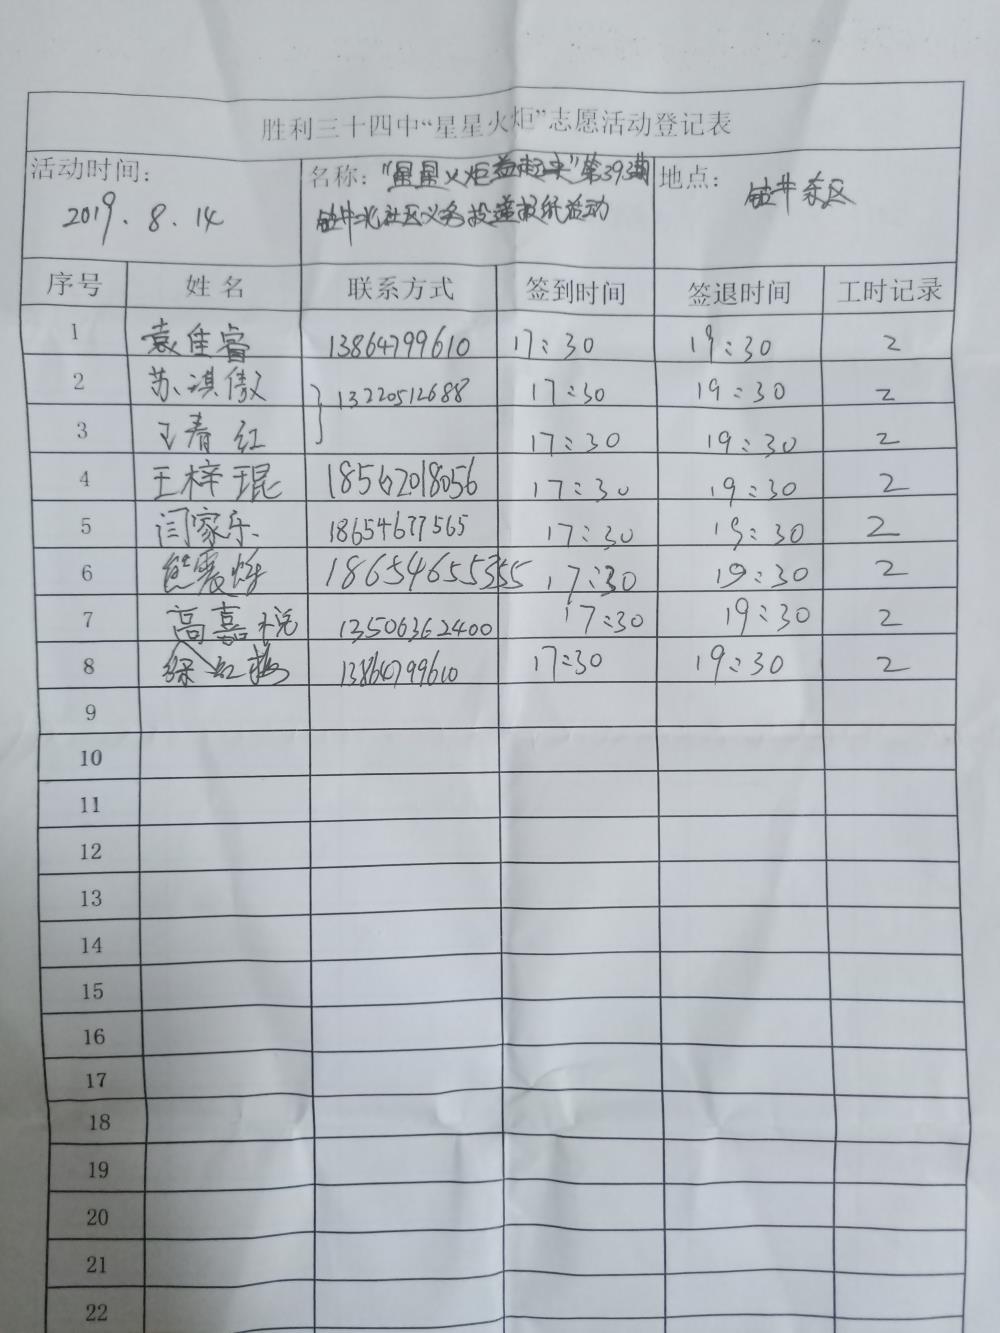 胜利三十四中“星星火炬”志愿活动登记表
活动时间: 名称: “星星火炬益起来”第393期 地点:
2019.8.14 钻井北社区义务投递报纸活动 钻井东区
序号 姓名 联系方式 签到时间 签退时间 工时记录
1 袁佳睿 13864799610 17:30 19:30 2
2 苏淇傲 13220512688 17:30 19:30 2
3 王春红 17:30 19:30 2
4 王梓琨 18562018056 17:30 19:30 2
5 闫家乐 18654677565 17:30 19:30 2
6 熊震烁 18654655355 17:30 19:30 2
7 高嘉悦 13506362400 17:30 19:30 2
8 红梅 13864799610 17:30 19:30 2
9
10
11
12
13
14
15
16
17
18
19
20
21
22